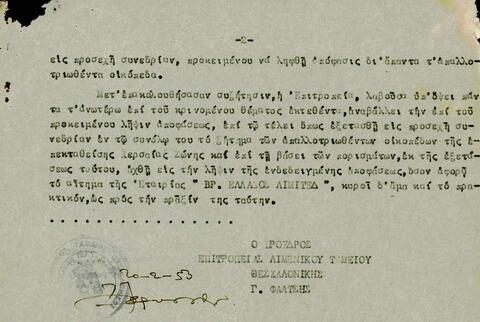 -2-
εἰς προσεχῆ συνεδρίαν, προκειμένου νά ληφθῇ ἀπόφασις δι'ἅπαντα τ'ἀπαλλο-
τριωθέντα οἰκόπεδα.
Μετ'ἐπακολουθήσασαν συζήτησιν,ἡ Ἐπιτροπεία, λαβοῦσα ὑπ'ὄψει πάν
τα τ'ἀνωτέρω ἐπί τοῦ κρινομένου θέματος ἐκτεθέντα,ἀναβάλλει τήν ἐπί τοῦ
προκειμένου λῆψιν ἀποφάσεως, ἐπί τῷ τέλει ὅπως ἐξετασθῇ εἰς προσεχῆ συ-
νεδρίαν ἐν τῷ συνόλῳ του τό ζήτημα τῶν ἀπαλλοτριωθέντων οἰκοπέδων τῆς ἐ-
πεκταθείσης Χερσαίας Ζώνης καί ἐπί τῇ βάσει τῶν πορισμάτων,ἐκ τῆς ἐξετά-
σεως τούτου, ἀχθῇ εἰς τήν λῆψιν τῆς ἐνδεδειγμένης ἀποφάσεως,ὅσον ἀφορᾷ
τό αἴτημα τῆς Ἑταιρίας " ΒΡ. ΕΛΛΑΔΟΣ ΛΙΜΙΤΕΔ ", κυροῖ δ'ἅμα καί τό πρα-
κτικόν,ὡς πρός τήν πρᾶξίν της ταύτην.
. . . . . . . . . . . . . . .
Ο ΠΡΟΕΔΡΟΣ
ΕΠΙΤΡΟΠΕΙΑΣ ΛΙΜΕΝΙΚΟΥ ΤΑΜΕΙΟΥ
ΘΕΣΣΑΛΟΝΙΚΗΣ
Γ. ΦΑΛΤΣΗΣ
20-2-53